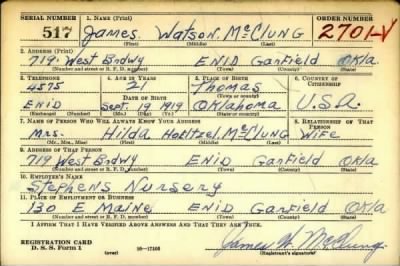 SERIAL NUMBER 1. NAME (Print) ORDER NUMBER
517 James Watson McClung 2701-V
(First) (Middle) (Last)
2. ADDRESS (Print)
719 West Brdwy ENID Garfield Okla
(Number and street or R. F. D. number) (Town) (County) (State)
3. TELEPHONE 4. AGE IN YEARS 5. PLACE OF BIRTH 6. COUNTRY OF CITIZENSHIP
4575 21 Thomas
DATE OF BIRTH
ENID Sept. 19 1919 Oklahoma U.S.A.
(Exchange) (Mo.) (Day) (Yr.) (State or country)
7. NAME OF PERSON WHO WILL ALWAYS KNOW YOUR ADDRESS 8. RELATIONSHIP OF THAT PERSON
Mrs. Hilda Hoeltzel McClung Wife
(Mr., Mrs., Miss) (First) (Middle) (Last)
9. ADDRESS OF THAT PERSON
719 West Brdwy ENID Garfield Okla
(Number and street or R. F. D. number) (Town) (County) (State)
10. EMPLOYER'S NAME
Stephens Nursery
11. PLACE OF EMPLOYMENT OR BUSINESS
130 E Maine ENID Garfield Okla
(Number and street or R. F. D. number) (Town) (County) (State)
I AFFIRM THAT I HAVE VERIFIED ABOVE ANSWERS AND THAT THEY ARE TRUE.
REGISTRATION CARD
D. S. S. Form 1 16—17105 James W. McClung
(Registrant's signature)